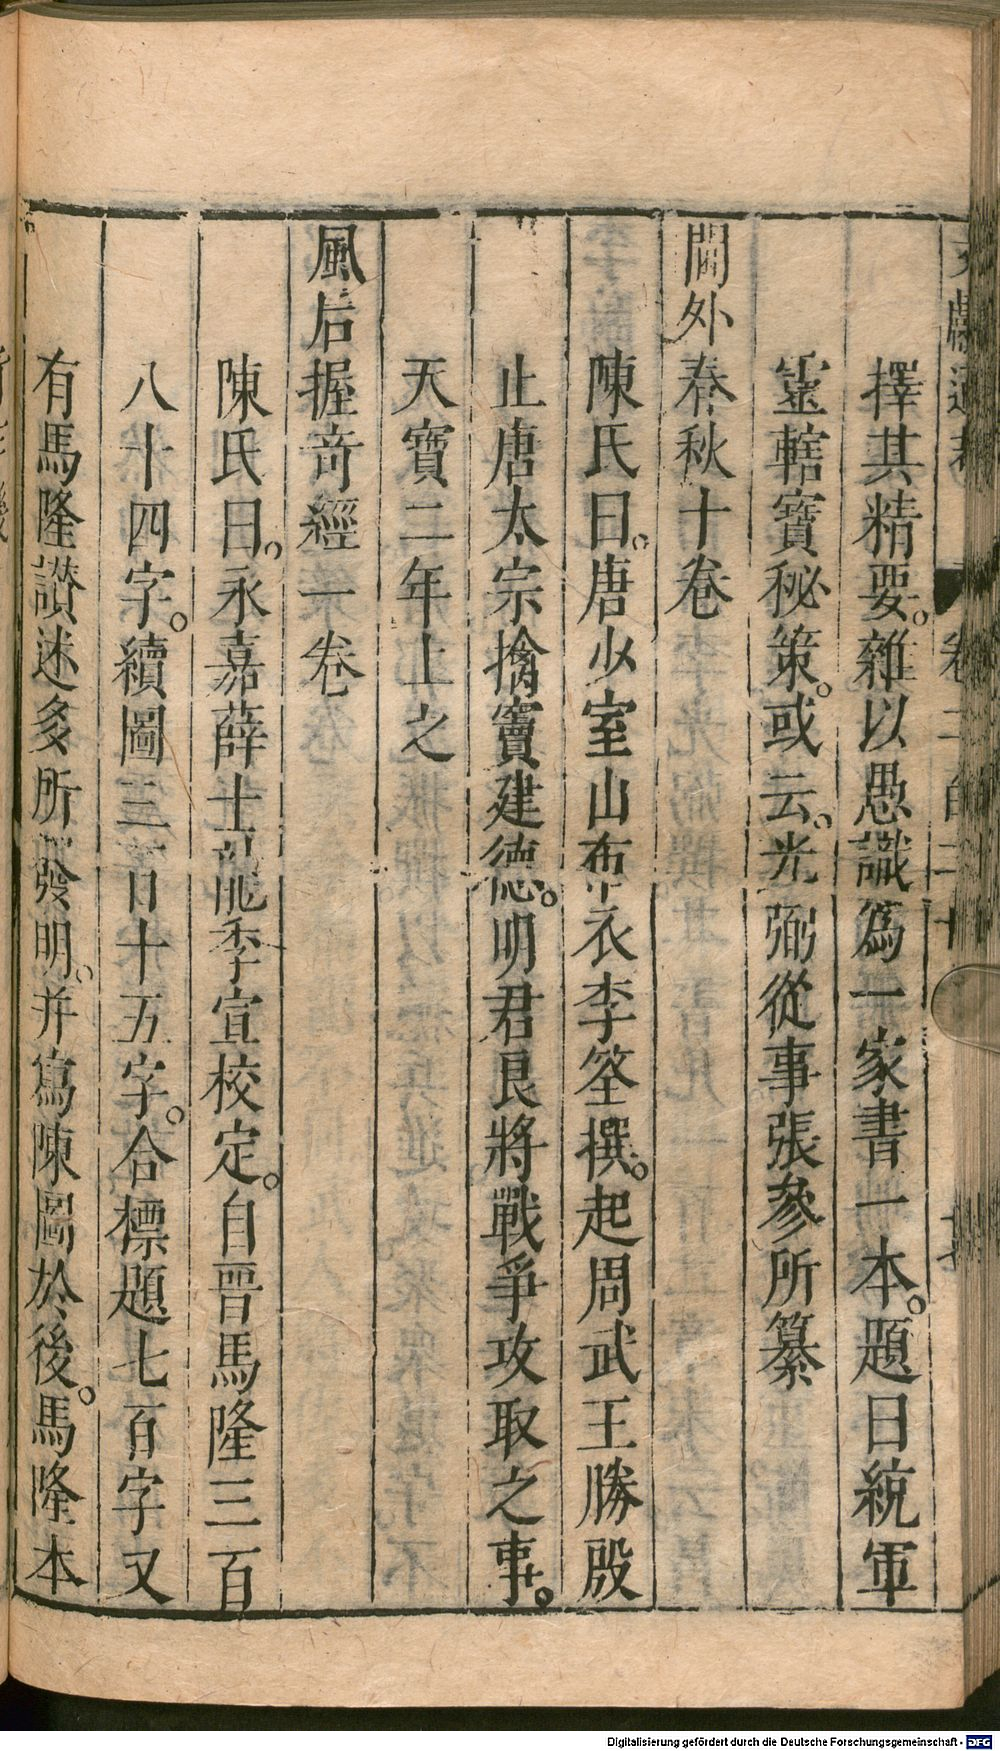 擇其精要。雜以愚識爲一家書一本。題曰統軍
靈轄寳秘策。或云。光弼從事張參所纂
閫外春秋十卷
陳氏曰。唐少室山布衣李筌撰。起周武王勝殷
止唐太宗擒竇建德。明君良將戰爭攻取之事。
天寳二年上之
風后握奇經一卷
陳氏曰。永嘉薛士龍季宣校定。自晋馬隆三百
八十四字。續圖三百十五字。合標題七百字又
有馬隆讃述多所發明。并寫陳圖於後。馬隆本
Digitalisierung gefördert durch die Deutsche Forschungsgemeinschaft - DFG